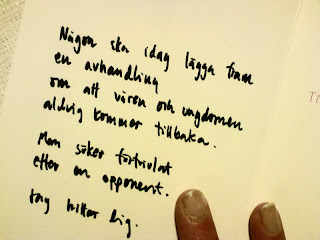 Någon ska idag lägga fram
en avhandling
om att våren och ungdomen
aldrig kommer tillbaka.
Man söker förtvivlat
efter en opponent.
Jag hittar dig.